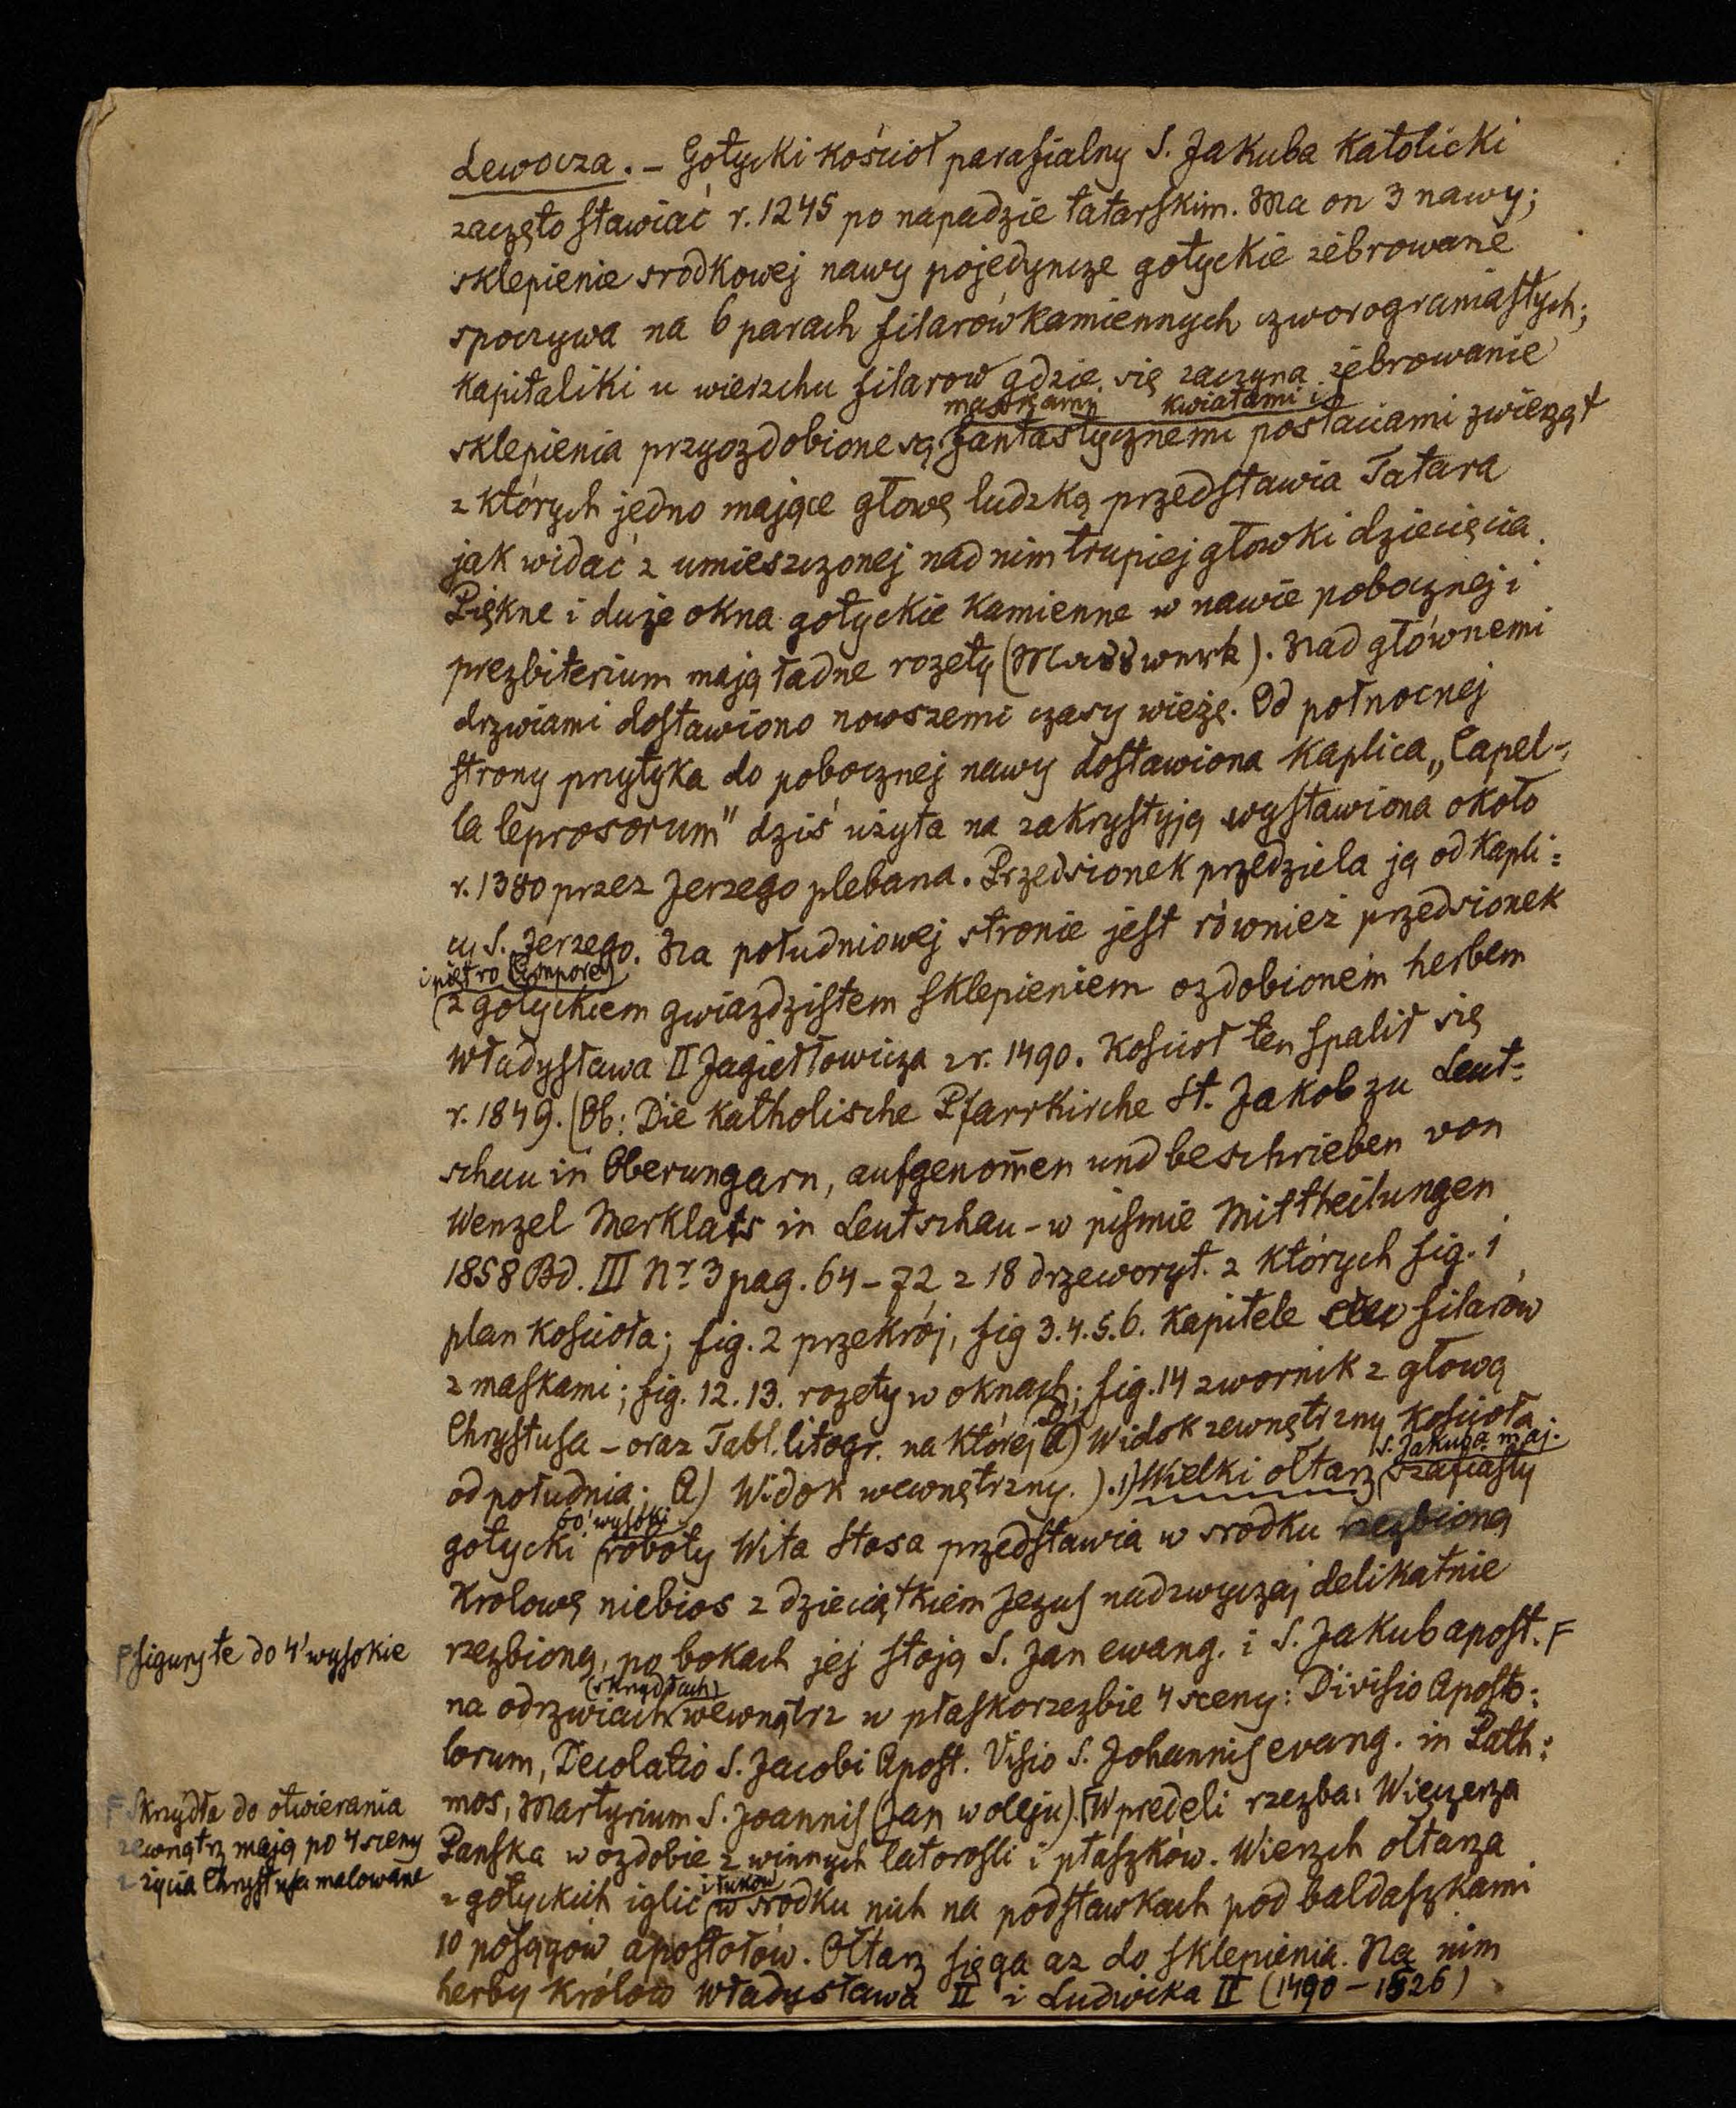 Lewocza. – Gotycki kościoł parafialny S. Jakuba katolicki
zaczęto stawiać r. 1245 po napadzie tatarskim. Ma on 3 nawy;
sklepienie srodkowej nawy pojedyncze gotyckie żebrowane
spoczywa na 6 parach filarow kamiennych czworograniastych;
kapitaliki u wierzchu filarow gdzie się zaczyna żebrowanie
maszkami kwiatami i
sklepienia przyozdobione są fantastycznemi postaciami zwierząt
z których jedno mające głowę ludzką przedstawia Tatara
jak widać z umieszczonej nad nim trupiej głowki dziecięcia.
Piękne i duże okna gotyckie kamienne w nawie pobocznej i
prezbiterium mają ładne rozety (Masswerk). Nad głównemi
drzwiami dostawiono nowszemi czasy wieżę. Od połnocnej
strony przytyka do pobocznej nawy dostawiona kaplica „Capel-
la leprosorum" dziś użyta na zakrystyją wystawiona około
r. 1380 przez Jerzego plebana. Przedsionek przedziela ją od kapli=
cy S. Jerzego. Na południowej stronie jest również przedsionek
i piętro (Empore)
z gotyckiem gwiazdzistem sklepieniem ozdobionem herbem
Władysława II Jagiełłowicza z r. 1490. Kościoł ten spalił się
r. 1849. (Ob: Die katholische Pfarrkirche St. Jakob zu Leut=
schau in Oberungarn, aufgenom̄en und beschrieben von
Wenzel Merklas in Leutschau – w piśmie Mittheilungen
1858 Bd. III Nr. 3 pag. 64–72 z 18 drzeworyt. z których fig. 1
plan kościoła; fig. 2 przekrój, fig 3.4.5.6. kapitele filarów
z maskami; fig. 12. 13. rozety w oknach; fig. 14 zwornik z głową
Chrystusa – oraz Tabl. litogr. na której a) Widok zewnętrzny kościoła
S. Jakuba maj.
od południa. Widok wewnętrzny. ). 1) Wielki ołtarz szafiasty
60' wysoki
gotycki roboty Wita Stosa przedstawia w srodku rzezbioną
Krolowę niebios z dzieciątkiem Jezus nadzwyczaj delikatnie
rzezbioną, po bokach jej stoją S. Jan ewang. i S. Jakub apost. F
F figury te do 4' wysokie
(skrzydłach)
na odrzwiach wewnątrz w płaskorzezbie 4 sceny: Divisio Aposto=
lorum, Decolatio S. Jacobi Apost. Visio S. Johannis evang. in Path=
mos, Martyrium S. Joannis (Jan w oleju). F W predeli rzezba: Wieczerza
F Skrzydła do otwierania
zewnątrz mają po 4 sceny
z życia Chrystusa malowane
Panska w ozdobie z winnych latorosli i ptaszków. Wierzch ołtarza
i łuków
z gotyckich iglic w srodku nich na podstawkach pod baldaszkami
10 posągów apostołów. Ołtarz sięga az do sklepienia. Na nim
herby Królow Władysława II i Ludwika II (1490 – 1526)